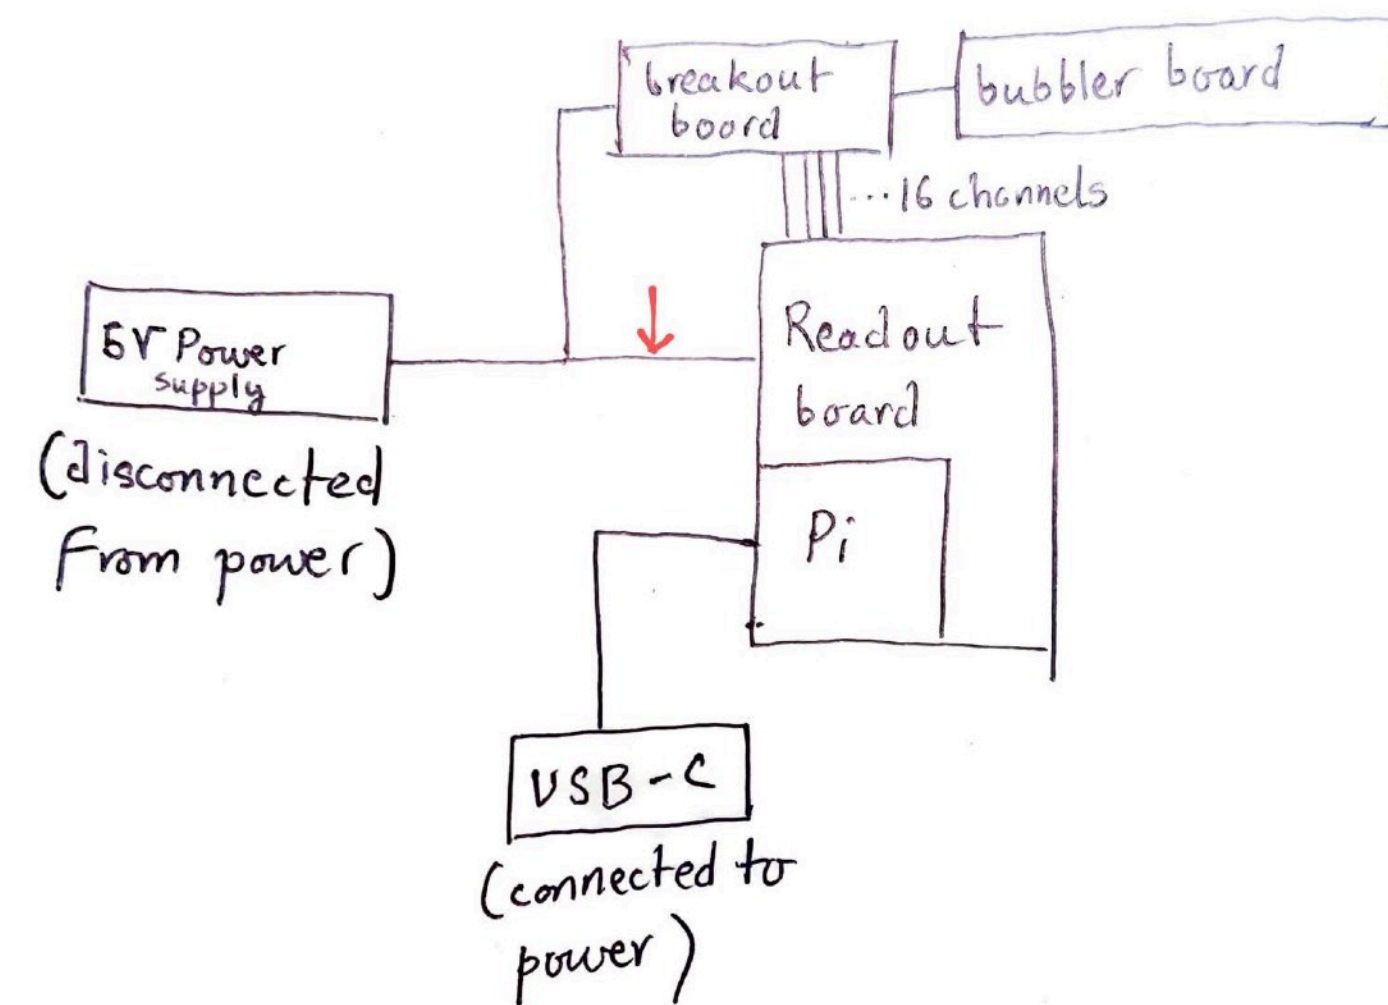 breakout
boord
bubbler board
...16 channels
5V Power
supply
(disconnected
from power)
Readout
board
Pi
USB-C
(connected to
power)